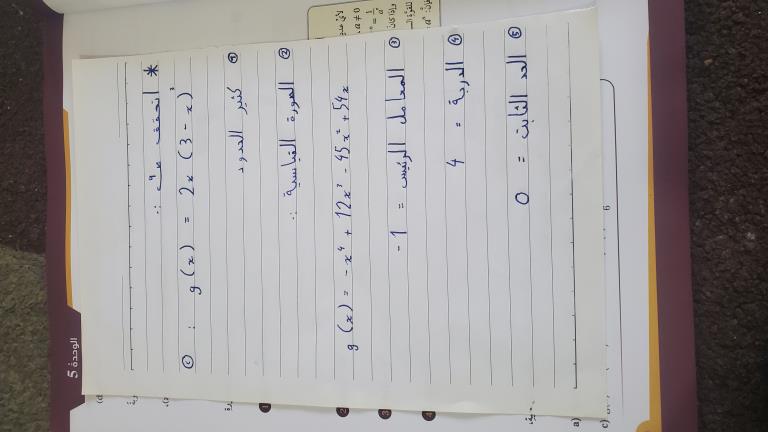 * اتحقق من فهمي :
c) : g(x) = 2x (3 - x)³
① كثير الحدود
② الصورة القياسية :
g(x) = -x⁴ + 12x³ - 45x² + 54x
③ المعامل الرئيس = -1
④ الدرجة = 4
⑤ الحد الثابت = 0
الوحدة 5
1
2
3
4
a)
c)
6